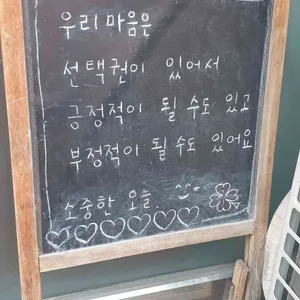 우리 마음은
선택권이 있어서
긍정적이 될 수도 있고
부정적이 될 수도 있어요
소중한 오늘.